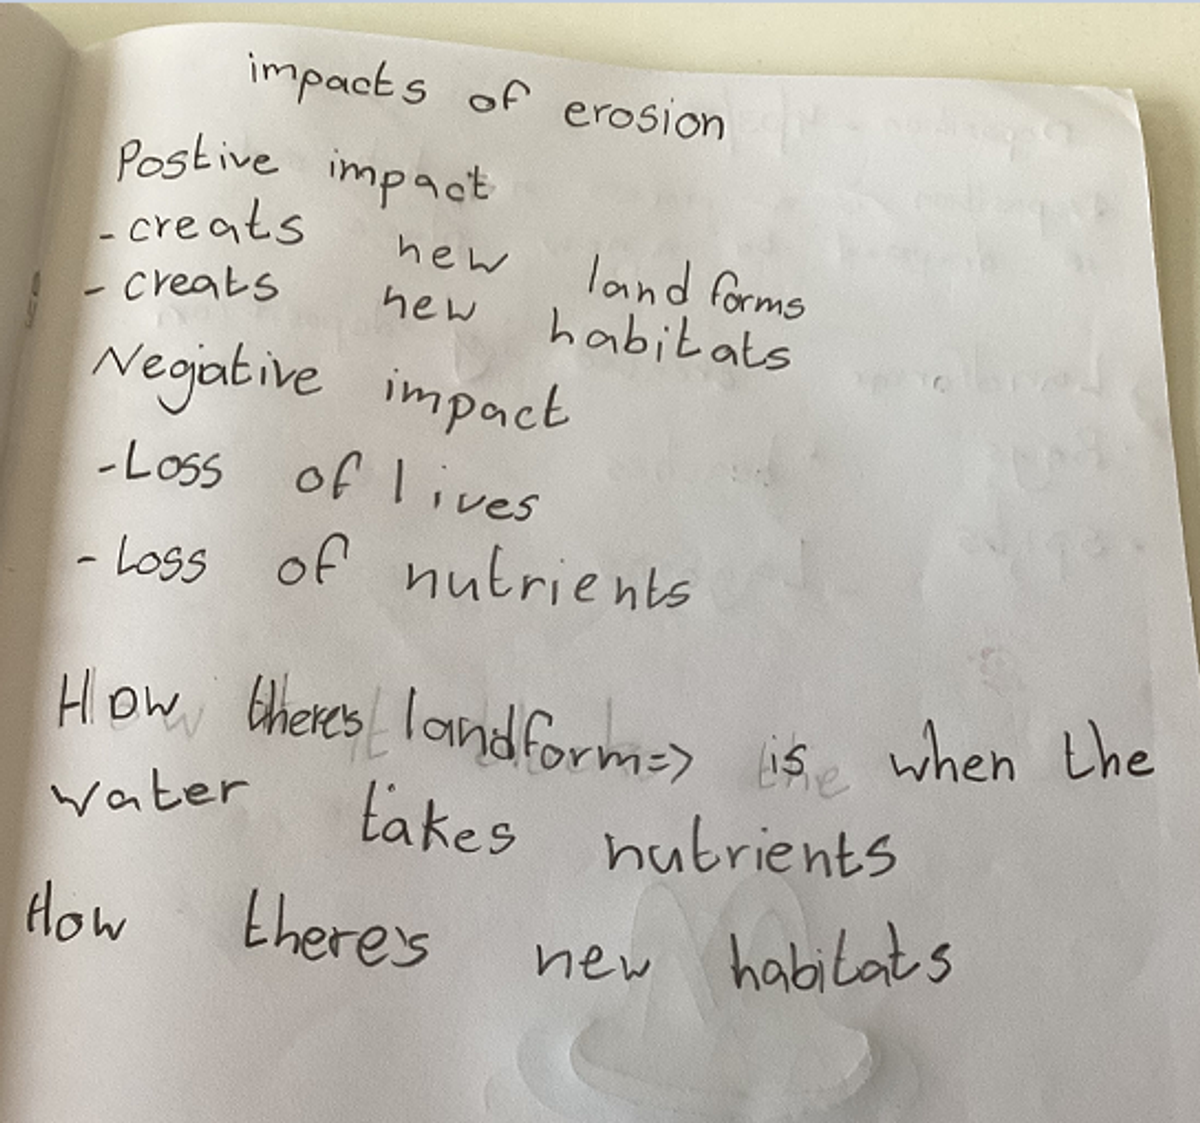 impacts of erosion
Postive impact
- creats new land forms
- creats new habitats
Negative impact
- Loss of lives
- Loss of nutrients
How there's landform => is when the
water takes nutrients
How there's new habitats